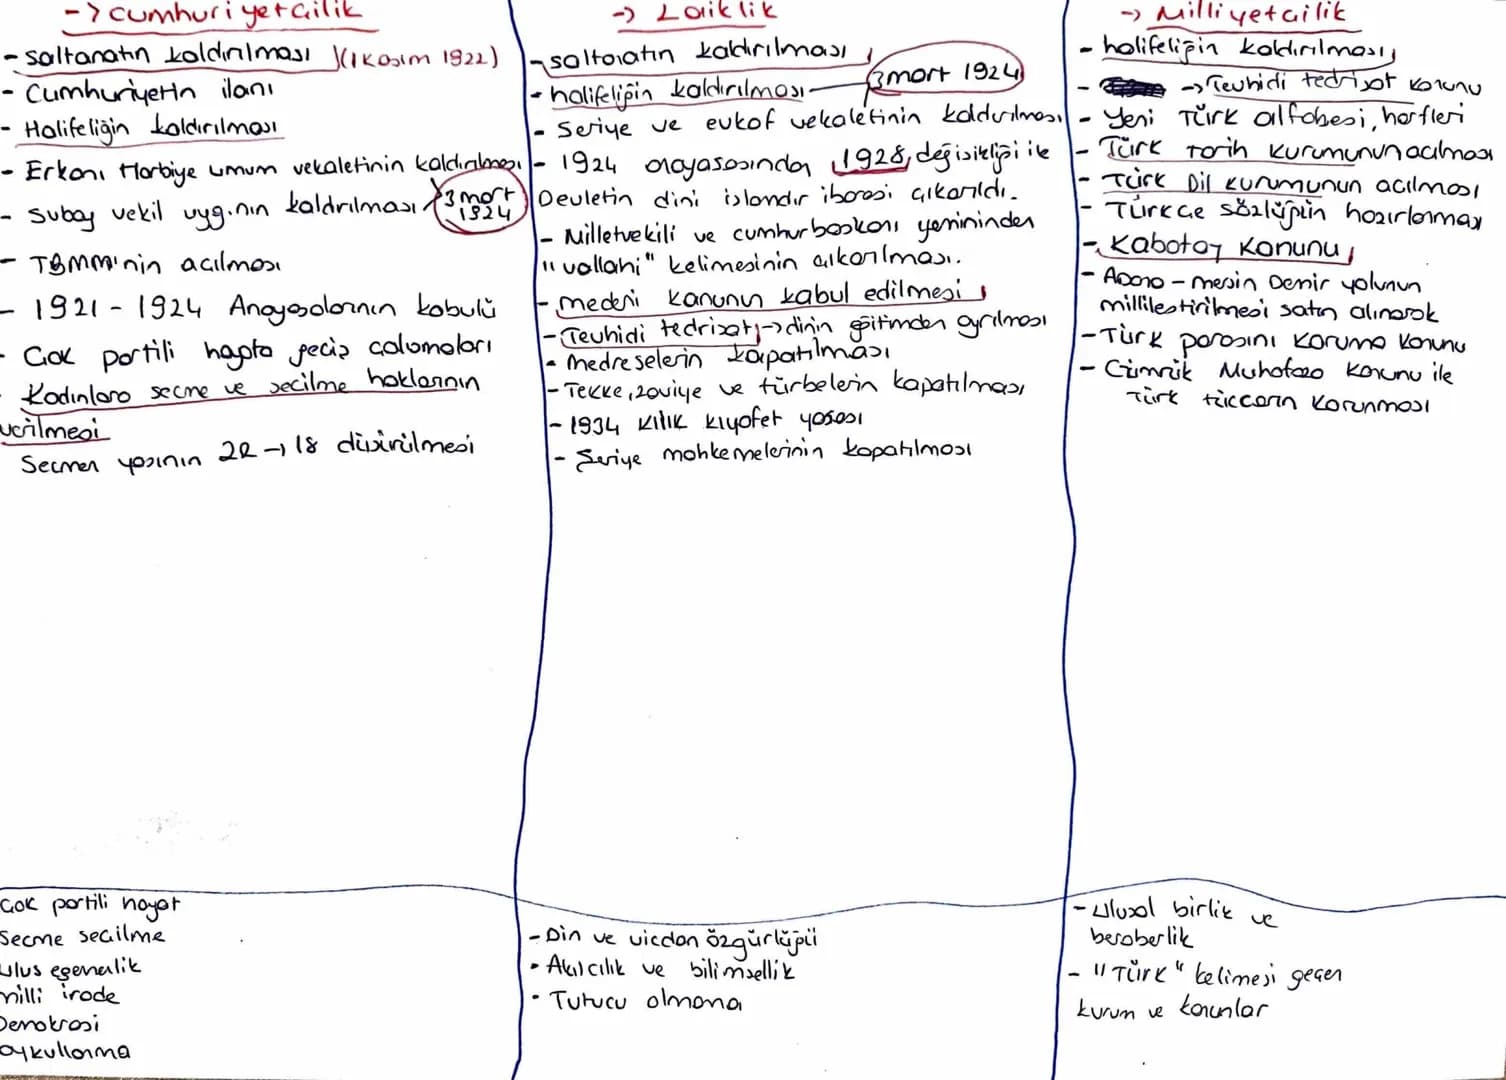 -> cumhuriyetçilik
- saltanatın kaldırılması (1 Kasım 1922)
- Cumhuriyetin ilanı
- Halifeliğin kaldırılması
- Erkanı Harbiye umum vekaletinin kaldırılması
- Subay vekil uyg.nın kaldırılması 3 mart 1924
- TBMM'nin açılması
- 1921 - 1924 Anayasalarının kabulü
- Çok partili hayata geçiş çalışmaları
Kadınlara seçme ve seçilme haklarının
verilmesi
Seçmen yaşının 22 -> 18 düşürülmesi
Çok partili hayat
Seçme seçilme
ulus egemenlik
milli irade
Demokrasi
oy kullanma
-> Laiklik
- saltanatın kaldırılması
- halifeliğin kaldırılması 3 mart 1924
- Şeriye ve evkaf vekaletinin kaldırılması
- 1924 anayasasından 1928 değişikliği ile
Devletin dini islamdır ibaresi çıkarıldı.
- Milletvekili ve cumhurbaşkanı yemininden
"vallahi" kelimesinin çıkarılması.
- medeni kanunun kabul edilmesi
- Tevhidi tedrisat -> dinin eğitimden ayrılması
- medreselerin kapatılması
- Tekke, zaviye ve türbelerin kapatılması
- 1934 kılık kıyafet yasası
- Şeriye mahkemelerinin kapatılması
- Din ve vicdan özgürlüğü
- Akılcılık ve bilimsellik
- Tutucu olmama
-> Milliyetçilik
- halifeliğin kaldırılması
- -> Tevhidi tedrisat kanunu
- Yeni Türk alfabesi, harfleri
- Türk tarih kurumunun açılması
- Türk Dil kurumunun açılması
- Türkçe sözlüğün hazırlanması
- Kabotaj Kanunu
- Adana - mersin Demir yolunun
millileştirilmesi satın alınarak
- Türk parasını koruma kanunu
- Gümrük Muhafaza kanunu ile
Türk tüccarın korunması
- Ulusal birlik ve
beraberlik
- "Türk" kelimesi geçen
kurum ve kanunlar